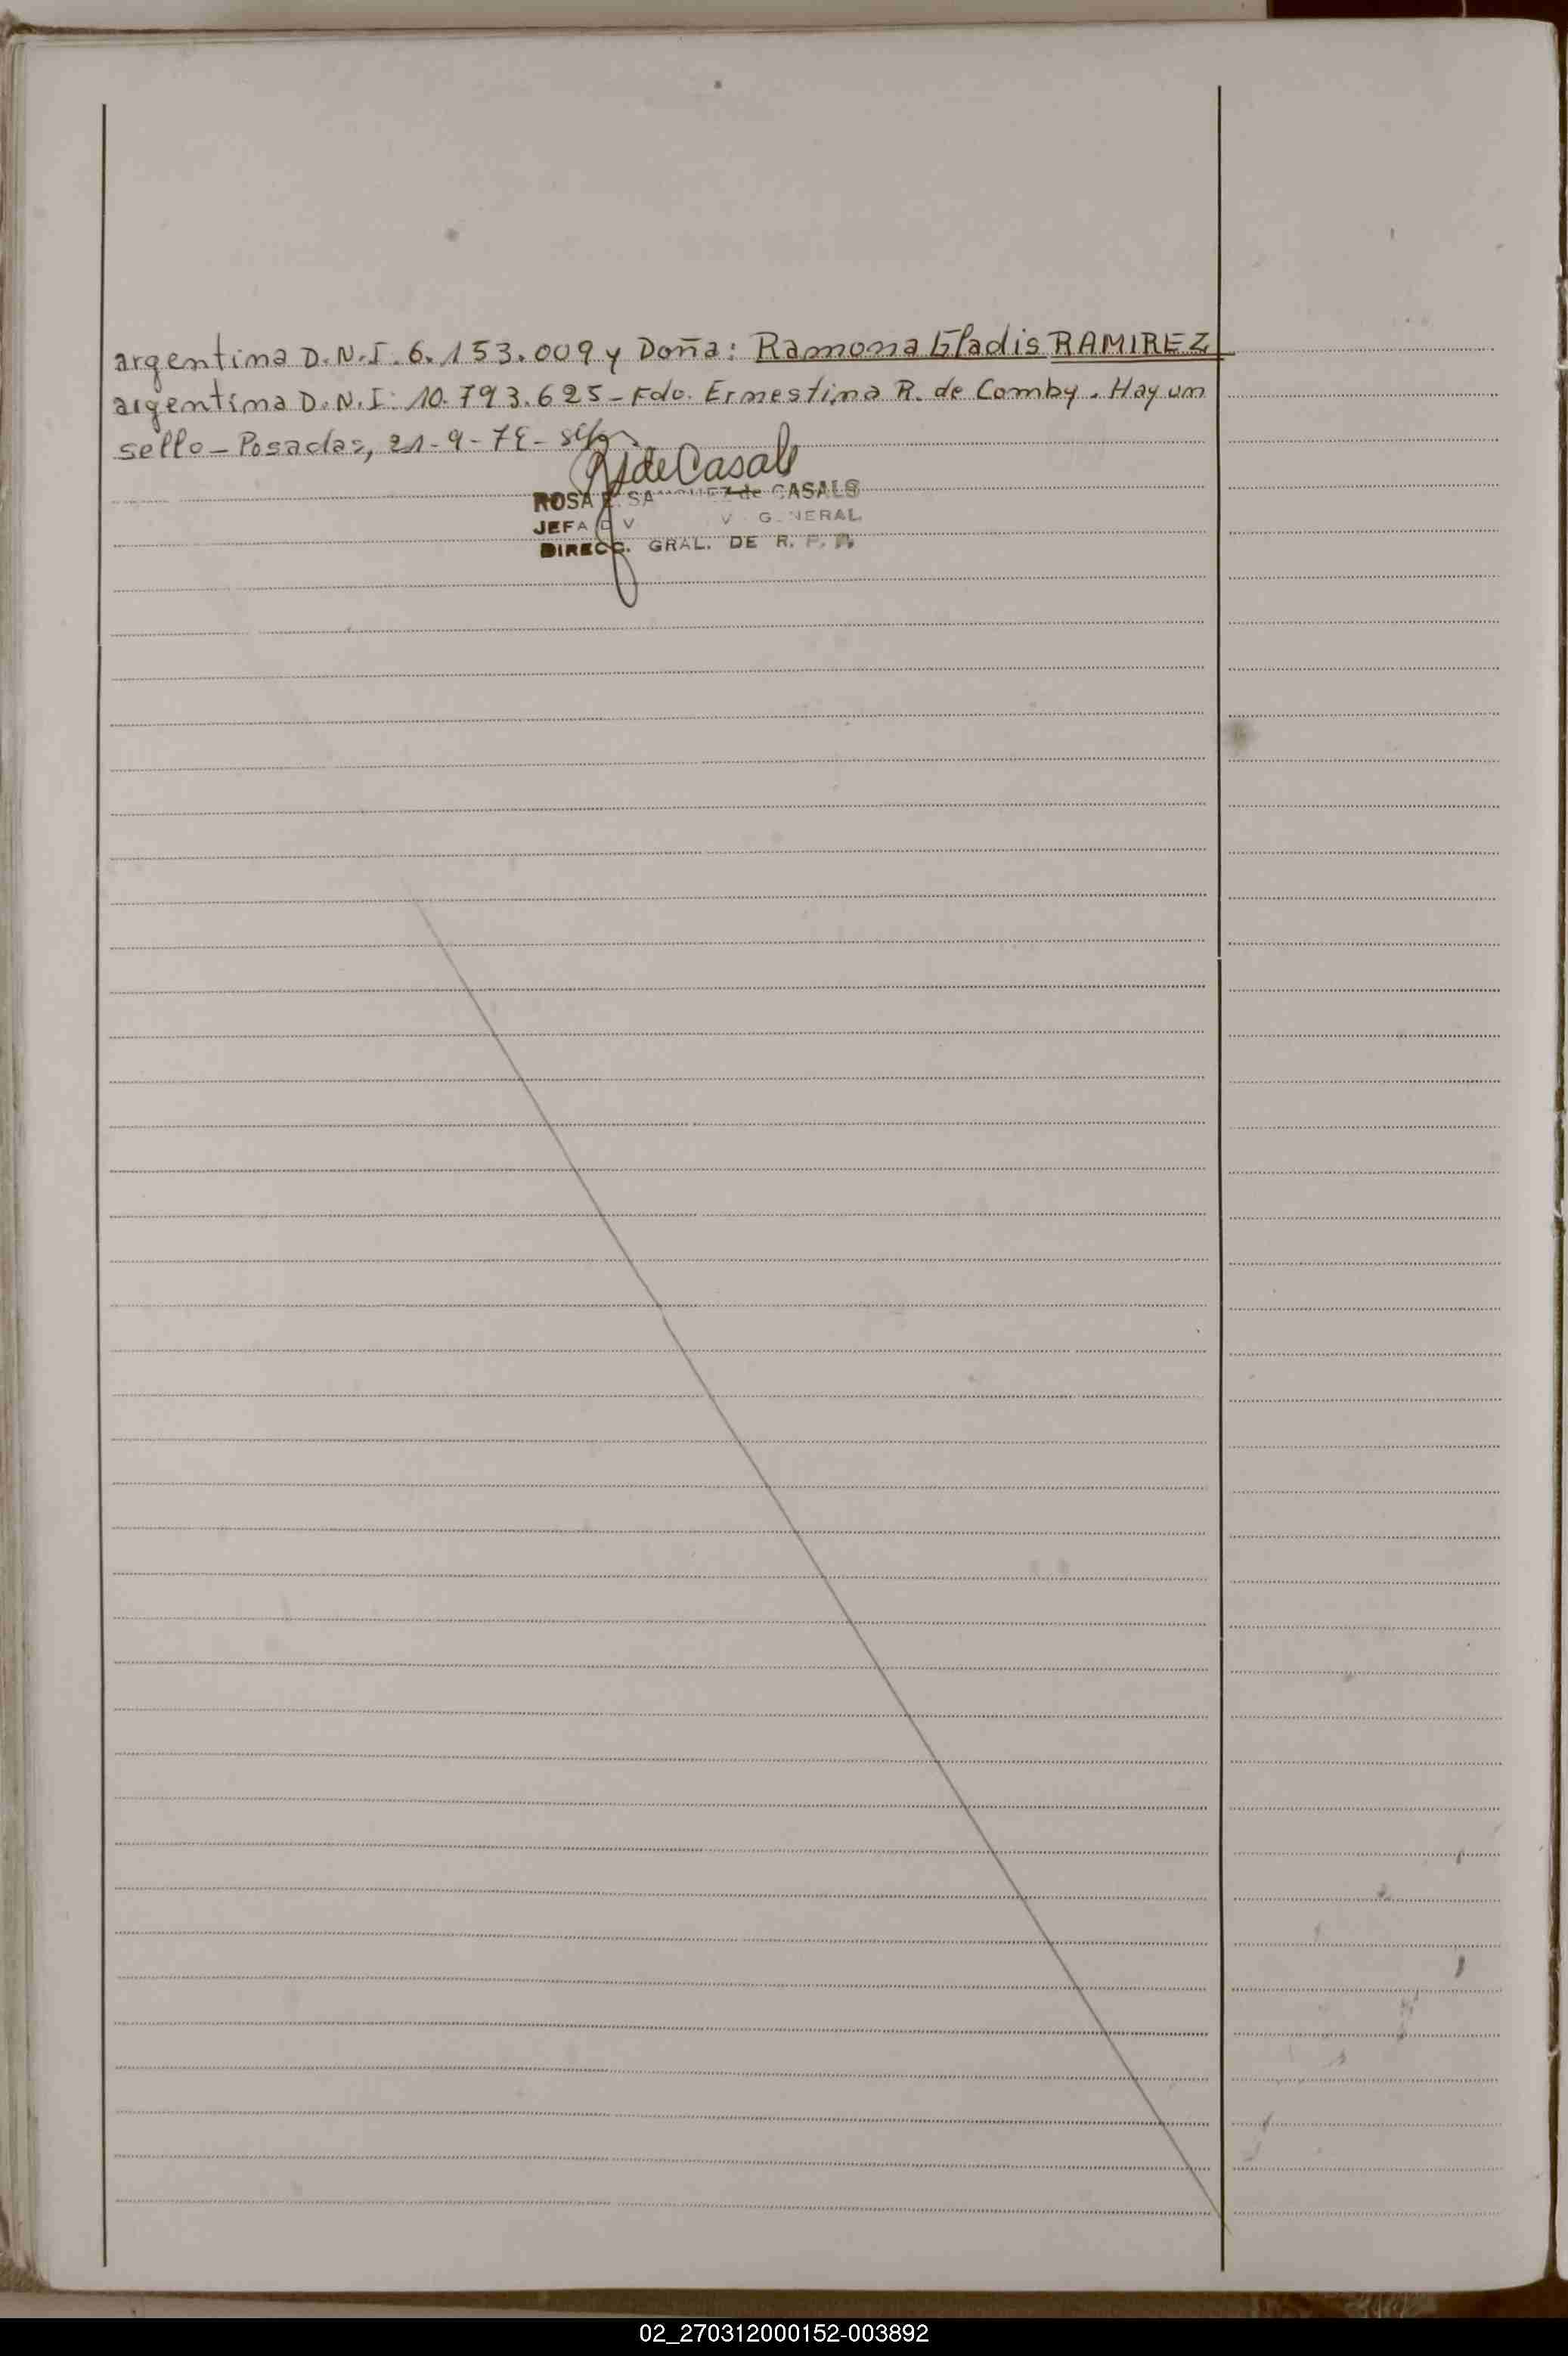 argentina D.N.I. 6.153.009 y Doña: Ramona Gladis RAMIREZ
argentina D.N.I: 10.793.625 - Fdo. Ernestina R. de Comby. Hay un
sello - Posadas, 21-9-78-
R J de Casals
ROSA de CASALS
JEFA GENERAL
DIRECC. GRAL. DE R. P. P.
02_270312000152-003892